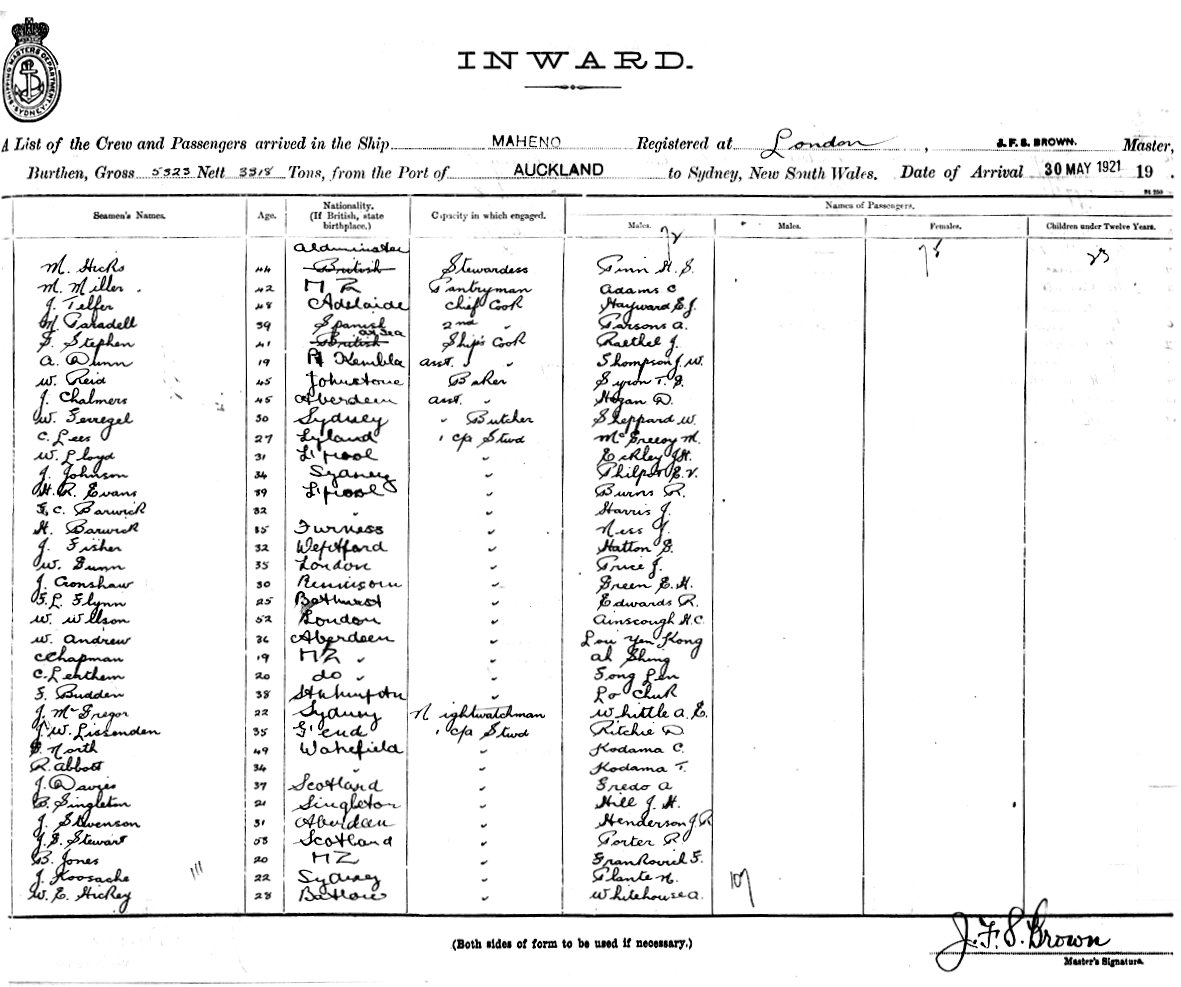 SHIPPING MASTERS DEPARTMENT SYDNEY
INWARD.
A List of the Crew and Passengers arrived in the Ship MAHENO Registered at London , J. F. S. BROWN. Master,
Burthen, Gross 5323 Nett 3318 Tons, from the Port of AUCKLAND to Sydney, New South Wales. Date of Arrival 30 MAY 1921 19 .
Seamen's Names. Age. Nationality. (If British, state birthplace.) Capacity in which engaged. Names of Passengers.
Males. Males. Females. Children under Twelve Years.
72 78 23
M. Hicks 44 British Stewardess Finn H. S.
M. Miller 42 NZ Pantryman Adams C
J. Telfer 48 Adelaide Chief Cook Hayward E. J.
M Paradell 39 Spanish 2nd " Parsons A.
Stephen 41 British at Sea Ship's Cook Raethel J.
A. Dunn 19 Pt Kembla asst. " " Thompson J. W.
W. Reid 45 Johnstone Baker Syron T.
J. Chalmers 45 Aberdeen asst. " Hogan D.
W. Ferregel 30 Sydney " Butcher Sheppard W.
C. Lees 27 Leyland " c/a Stwd M
W. Lloyd 31 L'pool " Eckley J H.
J. Johnson 34 Sydney " Philpot E. V.
H. R. Evans 39 L'pool " Burns R.
F. C. Barwick 32 " " Harris J.
H. Barwick 35 Furness " Ness J.
J. Fisher 32 " Hatton
W. Gunn 35 London " Price J.
J. Cronshaw 30 " Green E. H.
F. L. Flynn 25 Bathurst " Edwards R.
W. Wilson 52 London " Ainscough H. C.
W. Andrew 36 Aberdeen " Lou Yen Kong
C Chapman 19 NZ " " Ah Shing
C. Lenthem 20 do " " Fong Len
F. Budden 38 Sthhmpton " Lo Chuk
J. McGregor 22 Sydney Nightwatchman Whittle A. E.
J. W. Lissenden 35 G'end " c/a Stwd Ritchie D
North 49 Wakefield " Kodama C.
R. Abbott 34 " " Kodama T.
J. Davies 37 Scotland " Fredo A
B. Singleton 21 Singleton " Hill J. H.
J. Stevenson 31 Aberdeen " Henderson J. R
J. G. Stewart 53 Scotland " Porter R
B. Jones 20 NZ " F.
J. Koosache 22 Sydney " Plante N.
W. E. Hickey 28 " Whitehouse A.
111 107
(Both sides of form to be used if necessary.)
J. F. S. Brown
Master's Signature.